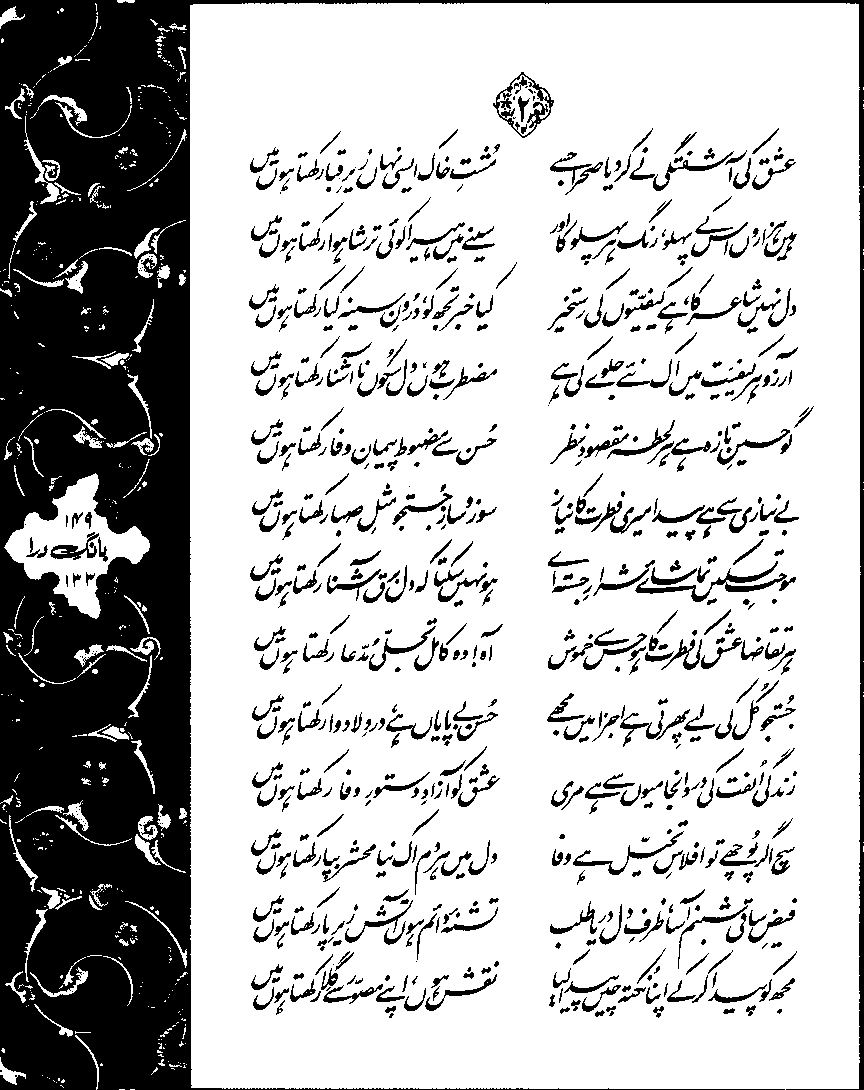 ۲
عشق کی آشفتگی نے کر دیا صحرا جسے مُشتِ خاک ایسی نہاں زیرِ قبا رکھتا ہوں میں
ہیں ہزاروں اس کے پہلو، رنگ ہر پہلو کا اور سینے میں ہیرا کوئی ترشا ہوا رکھتا ہوں میں
دل نہیں شاعر کا، ہے کیفیّتوں کی رستخیز کیا خبر تجھ کو، دُرونِ سینہ کیا رکھتا ہوں میں
آرزو ہر کیفیت میں اک نئے جلوے کی ہے مضطرب ہوں، دل سکُوں ناآشنا رکھتا ہوں میں
گو حسینِ تازہ ہے ہر لحظہ مقصودِ نظر حُسن سے مضبوط پیمانِ وفا رکھتا ہوں میں
بے نیازی سے ہے پیدا میری فطرت کا نیاز سوز و سازِ جُستجو مثلِ صبا رکھتا ہوں میں
موجبِ تسکیں تماشائے شرارِ جستہ اے ہو نہیں سکتا کہ دل برق آشنا رکھتا ہوں میں
ہر تقاضا عشق کی فطرت کا ہو جس سے خموش آہ! وہ کامل تجلّی مُدّعا رکھتا ہوں میں
جُستجو کُل کی لیے پھِرتی ہے اجزا میں مجھے حُسن بے پایاں ہے، دردِ لادوا رکھتا ہوں میں
زندگی اُلفت کی درد انجامیوں سے ہے مری عشق کو آزادِ دستورِ وفا رکھتا ہوں میں
سچ اگر پُوچھے تو افلاسِ تخیّل ہے وفا دل میں ہر دم اک نیا محشر بپا رکھتا ہوں میں
فیضِ ساقی شبنم آسا، ظرفِ دل دریا طلب تشنۂ دائم ہوں آتش زیرِ پا رکھتا ہوں میں
مجھ کو پیدا کر کے اپنا نُکتہ چیں پیدا کیا نقش ہوں، اپنے مصوّر سے گلا رکھتا ہوں میں
۱۴۹
بانگِ درا
۱۳۳